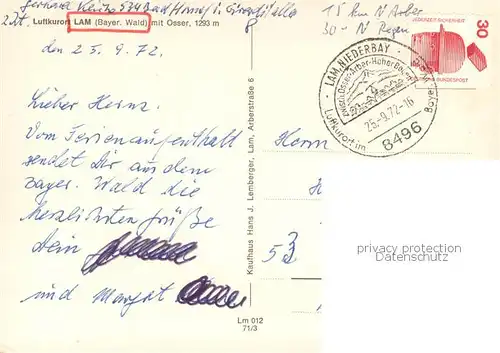 Gerhard
Luftkurort LAM (Bayer. Wald) mit Osser, 1293 m
den 25.9.72
15 km N Arber
30 - N Regen
Lieber Heinz
Vom Ferienaufenthalt
sendet Dir aus dem
Bayer. Wald die
herzlichsten Grüße
Dein
und Margot
Lm 012
71/3
Kaufhaus Hans J. Lemberger, Lam, Arberstraße 6
LAM, NIEDERBAY.
25.-9.72-16
Luftkurort im Bayer.
8496
30
JEDERZEIT SICHERHEIT
DEUTSCHE BUNDESPOST
Herrn
53
privacy protection
Datenschutz